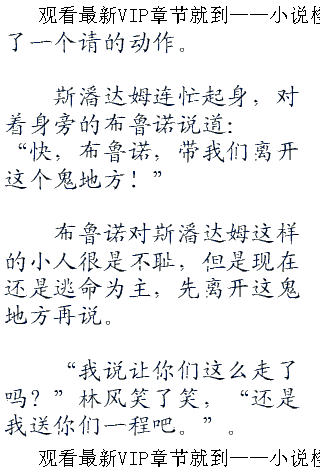 观看最新VIP章节就到——小说
了一个请的动作。
斯潘达姆连忙起身，对
着身旁的布鲁诺说道：
“快，布鲁诺，带我们离开
这个鬼地方！”
布鲁诺对斯潘达姆这样
的小人很是不耻，但是现在
还是逃命为主，先离开这鬼
地方再说。
“我说让你们这么走了
吗？”林风笑了笑，“还是
我送你们一程吧。”。
观看最新VIP章节就到——小说